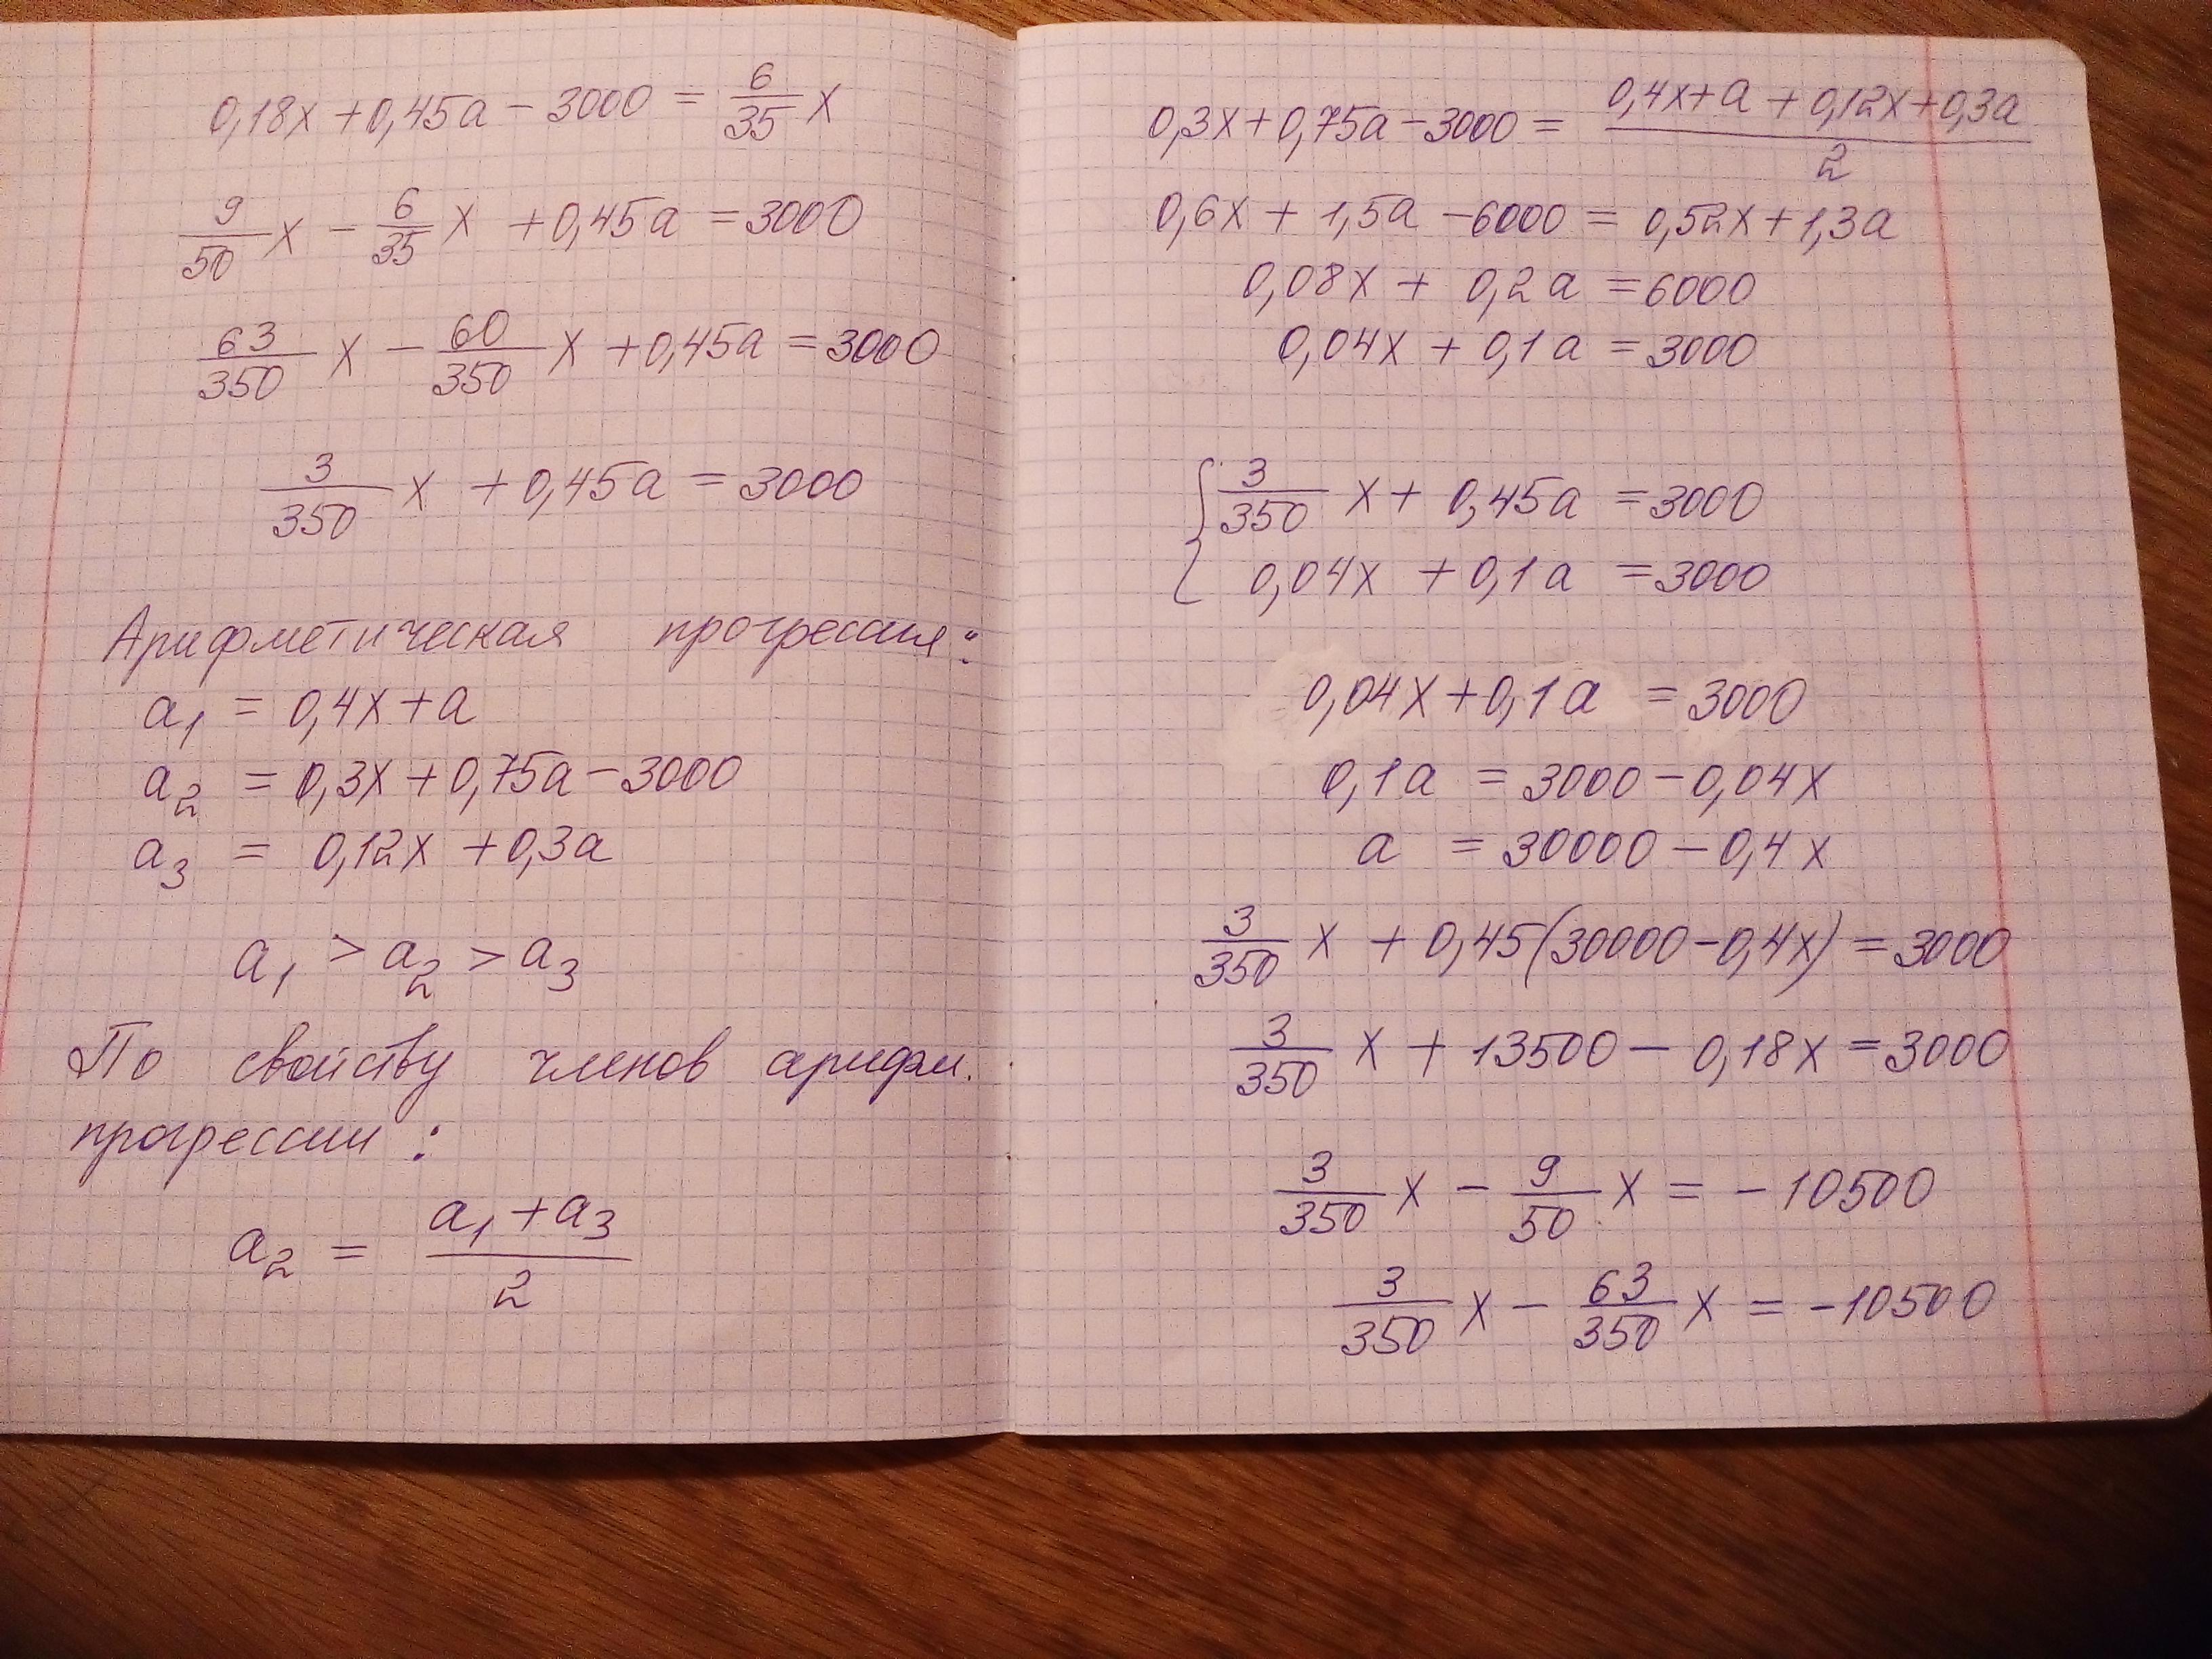 0,18x + 0,45a − 3000 = 6/35 x
9/50 x − 6/35 x + 0,45a = 3000
63/350 x − 60/350 x + 0,45a = 3000
3/350 x + 0,45a = 3000
Арифметическая прогрессия:
a₁ = 0,4x + a
a₂ = 0,3x + 0,75a − 3000
a₃ = 0,12x + 0,3a
a₁ > a₂ > a₃
По свойству членов арифм.
прогрессии:
a₂ = (a₁ + a₃)/2
0,3x + 0,75a − 3000 = (0,4x + a + 0,12x + 0,3a)/2
0,6x + 1,5a − 6000 = 0,52x + 1,3a
0,08x + 0,2a = 6000
0,04x + 0,1a = 3000
{ 3/350 x + 0,45a = 3000
0,04x + 0,1a = 3000
0,04x + 0,1a = 3000
0,1a = 3000 − 0,04x
a = 30000 − 0,4x
3/350 x + 0,45(30000 − 0,4x) = 3000
3/350 x + 13500 − 0,18x = 3000
3/350 x − 9/50 x = −10500
3/350 x − 63/350 x = −10500